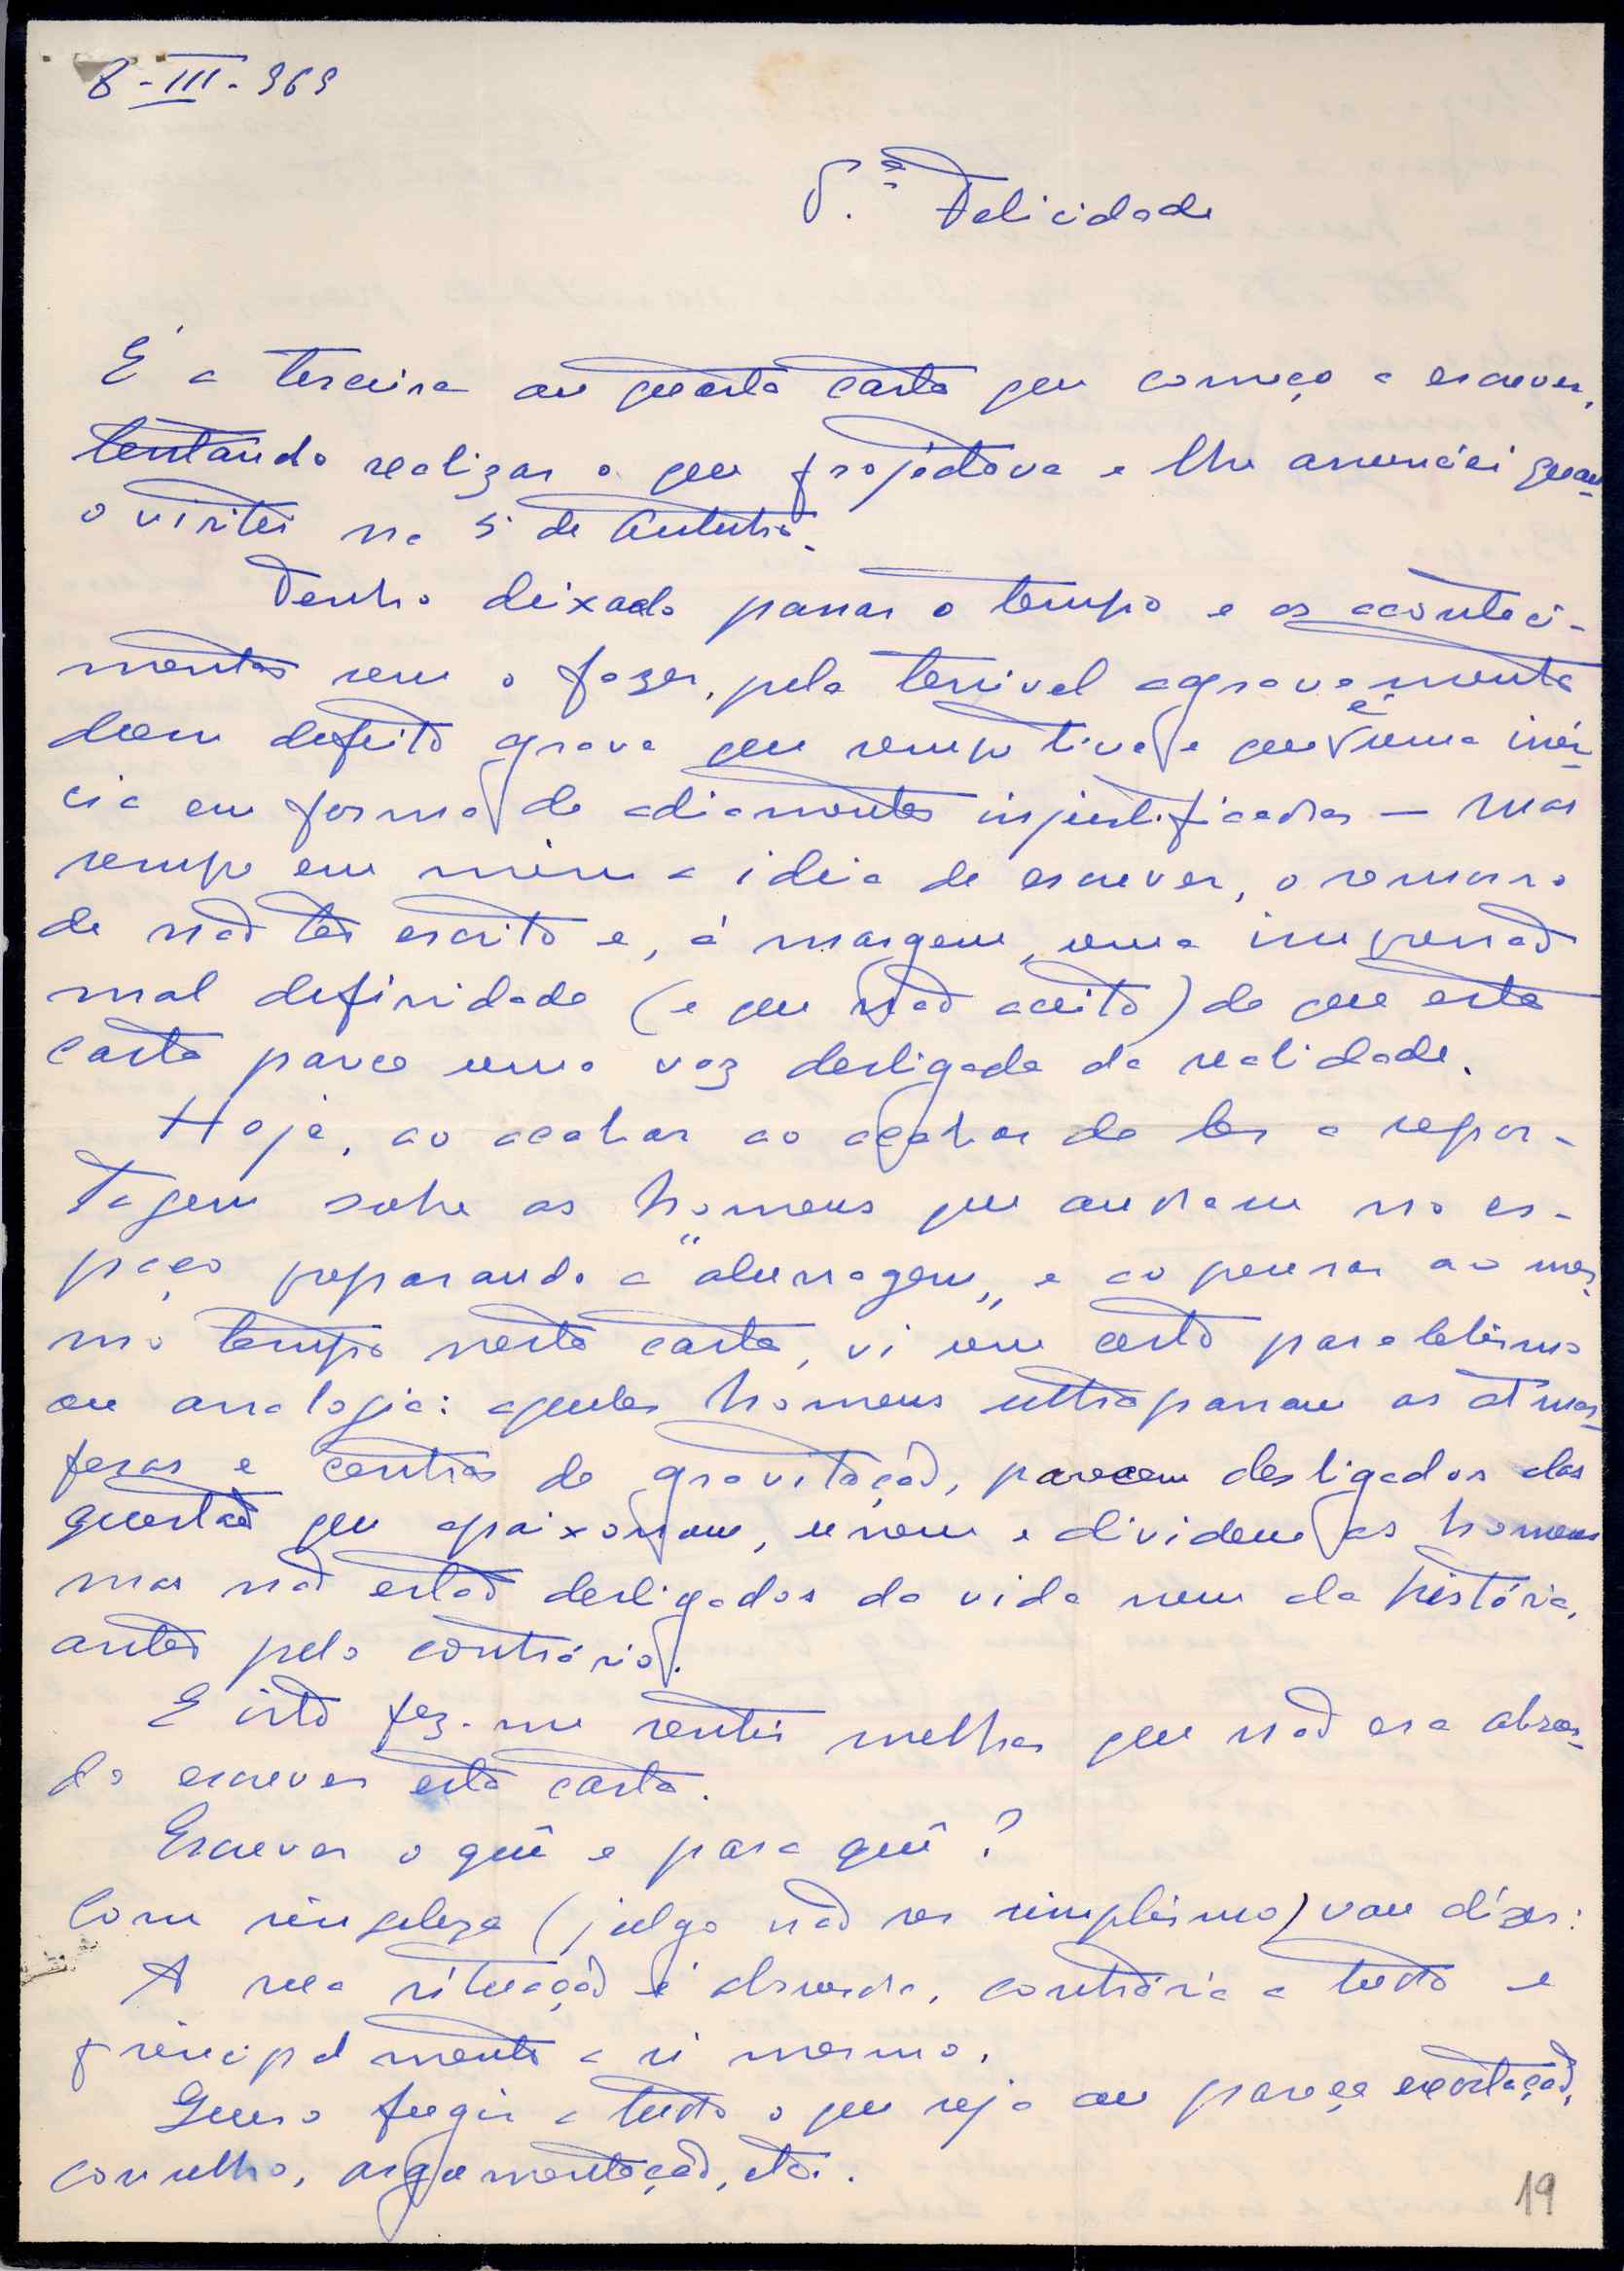 8-III-969
P.e Felicidade
É a terceira ou quarta carta que começo a escrever,
tentando realizar o que projectava e lhe anunciei quan-
o visitei na S. de
Tenho deixado passar o tempo e os aconteci-
mentos sem o fazer, pelo terrível agravamento
dum defeito grave que sempre tive e que é uma inér-
cia em forma de adiamentos injustificados — mas
sempre em mim a ideia de escrever, o remorso
de não ter escrito e, à margem, uma impressão
mal definidade (e que não aceito) de que esta
carta parece uma voz desligada da realidade.
Hoje, ao acabar ao acabar de ler a repor-
tagem sobre os homens que andam no es-
paço preparando a "alunagem" e ao pensar ao mes-
mo tempo nesta carta, vi um certo paralelismo
ou analogia: aqueles homens ultrapassam as atmos-
feras e centros de gravitação, parecem desligados das
questões que apaixonam, unem e dividem os homens
mas não estão desligados da vida nem da história,
antes pelo contrário.
E isto fez-me sentir melhor que não era absur-
do escrever esta carta.
Escrever o quê e para quê?
Com singeleza (julgo não ser simplismo) vou dizer:
A sua situação é absurda, contrária a tudo e
principalmente a si mesmo.
Quero fugir a tudo o que seja ou pareça exortação,
conselho, argumentação, etc.
19